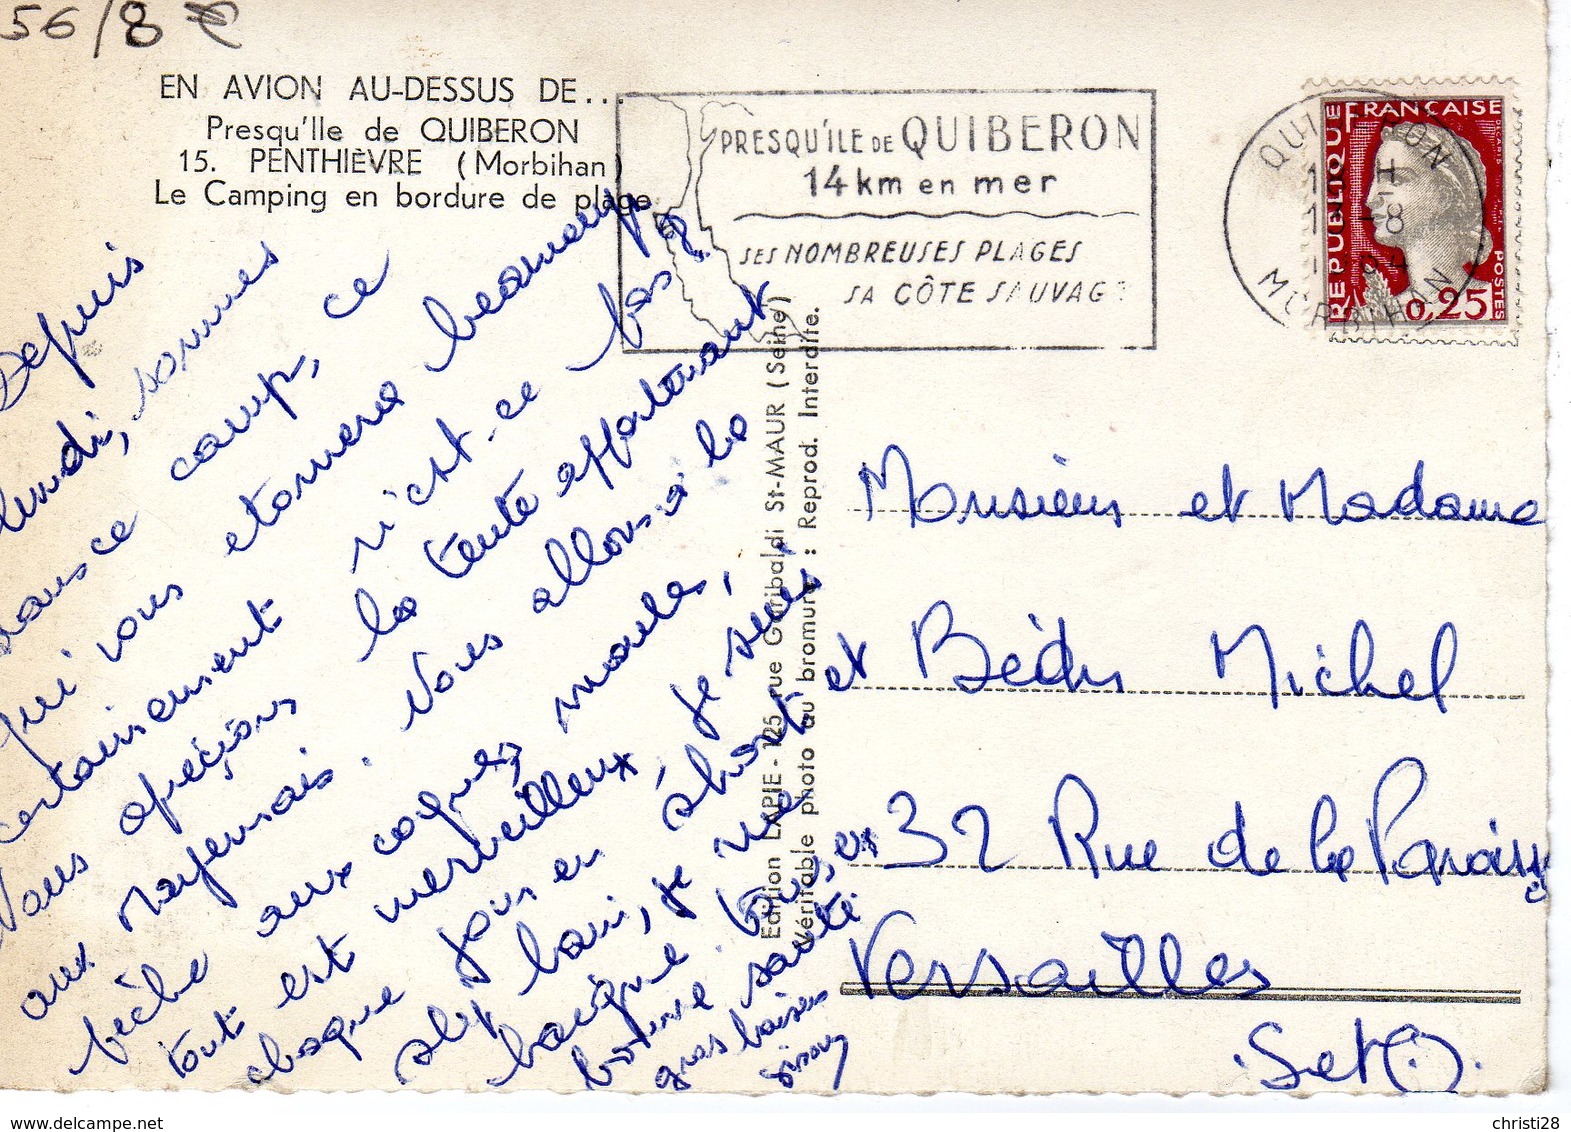 56/8 €
EN AVION AU-DESSUS DE...
Presqu'Ile de QUIBERON
15. PENTHIÈVRE (Morbihan)
Le Camping en bordure de plage
PRESQU'ÎLE DE QUIBERON
14 km en mer
SES NOMBREUSES PLAGES
SA CÔTE SAUVAGE
QUIBERON
MORBIHAN
RÉPUBLIQUE FRANÇAISE
POSTES
0,25
Depuis
lundi, sommes
dans ce camp, ce
qui vous etonnera beaucoup
certainement n'est-ce pas?
Nous apreçions la tente appartenant
aux Mayennais. Nous allons à la
pêche aux coques, moules,
tout est merveilleux, je suis
chaque jour en short et
slip bain, je me
baigne. Tous, en
bonne santé
gros baisers
Edition LAPIE - 125 rue Garibaldi St-MAUR (Seine)
Véritable photo au bromure : Reprod. Interdite.
Monsieur et Madame
et Michel
32 Rue de la Paroisse
Versailles
Set O.
christi28